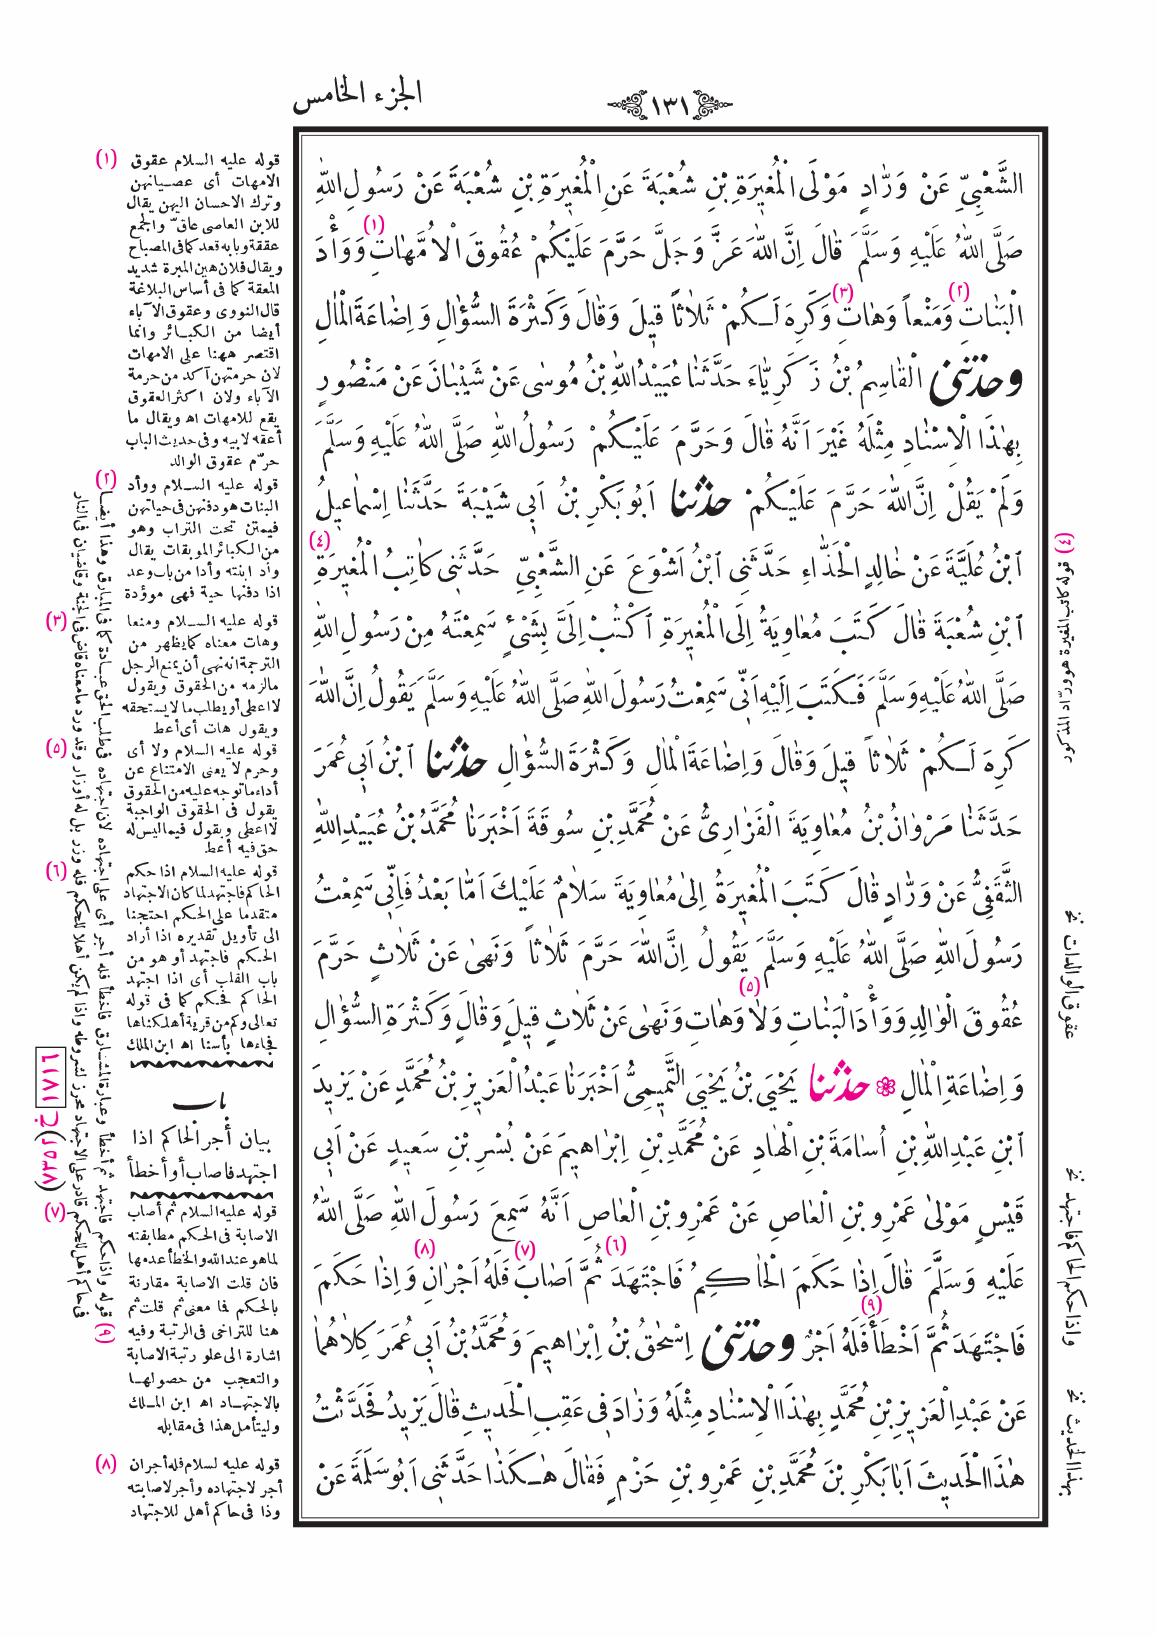 الجزء الخامس
١٣١
الشَّعْبِيِّ عَنْ وَرَّادٍ مَوْلَى الْمُغِيرَةِ بْنِ شُعْبَةَ عَنِ الْمُغِيرَةِ بْنِ شُعْبَةَ عَنْ رَسُولِ اللّٰهِ
صَلَّى اللّٰهُ عَلَيْهِ وَسَلَّمَ قَالَ اِنَّ اللّٰهَ عَزَّ وَجَلَّ حَرَّمَ عَلَيْكُمْ عُقُوقَ الْاُمَّهَاتِ (١) وَوَأْدَ
الْبَنَاتِ (٢) وَمَنْعاً وَهَاتِ (٣) وَكَرِهَ لَكُمْ ثَلَاثاً قِيلَ وَقَالَ وَكَثْرَةَ السُّؤَالِ وَاِضَاعَةَ الْمَالِ
وحدثنى الْقَاسِمُ بْنُ زَكَرِيَّاءَ حَدَّثَنَا عُبَيْدُ اللّٰهِ بْنُ مُوسٰى عَنْ شَيْبَانَ عَنْ مَنْصُورٍ
بِهٰذَا الْاِسْنَادِ مِثْلَهُ غَيْرَ اَنَّهُ قَالَ وَحَرَّمَ عَلَيْكُمْ رَسُولُ اللّٰهِ صَلَّى اللّٰهُ عَلَيْهِ وَسَلَّمَ
وَلَمْ يَقُلْ اِنَّ اللّٰهَ حَرَّمَ عَلَيْكُمْ حدثنا اَبُو بَكْرِ بْنُ اَبِى شَيْبَةَ حَدَّثَنَا اِسْمَاعِيلُ
ابْنُ عُلَيَّةَ عَنْ خَالِدٍ الْحَذَّاءِ حَدَّثَنِى ابْنُ اَشْوَعَ عَنِ الشَّعْبِيِّ حَدَّثَنِى كَاتِبُ الْمُغِيرَةِ (٤)
ابْنِ شُعْبَةَ قَالَ كَتَبَ مُعَاوِيَةُ اِلَى الْمُغِيرَةِ اكْتُبْ اِلَىَّ بِشَىْءٍ سَمِعْتَهُ مِنْ رَسُولِ اللّٰهِ
صَلَّى اللّٰهُ عَلَيْهِ وَسَلَّمَ فَكَتَبَ اِلَيْهِ اَنِّى سَمِعْتُ رَسُولَ اللّٰهِ صَلَّى اللّٰهُ عَلَيْهِ وَسَلَّمَ يَقُولُ اِنَّ اللّٰهَ
كَرِهَ لَكُمْ ثَلَاثاً قِيلَ وَقَالَ وَاِضَاعَةَ الْمَالِ وَكَثْرَةَ السُّؤَالِ حدثنا ابْنُ اَبِى عُمَرَ
حَدَّثَنَا مَرْوَانُ بْنُ مُعَاوِيَةَ الْفَزَارِىُّ عَنْ مُحَمَّدِ بْنِ سُوقَةَ اَخْبَرَنَا مُحَمَّدُ بْنُ عُبَيْدِ اللّٰهِ
الثَّقَفِىُّ عَنْ وَرَّادٍ قَالَ كَتَبَ الْمُغِيرَةُ اِلىٰ مُعَاوِيَةَ سَلَامٌ عَلَيْكَ اَمَّا بَعْدُ فَاِنِّى سَمِعْتُ
رَسُولَ اللّٰهِ صَلَّى اللّٰهُ عَلَيْهِ وَسَلَّمَ يَقُولُ اِنَّ اللّٰهَ حَرَّمَ ثَلَاثاً وَنَهىٰ عَنْ ثَلَاثٍ حَرَّمَ
عُقُوقَ الْوَالِدِ وَوَأْدَ الْبَنَاتِ وَلَا وَهَاتِ (٥) وَنَهىٰ عَنْ ثَلَاثٍ قِيلٍ وَقَالٍ وَكَثْرَةِ السُّؤَالِ
وَاِضَاعَةِ الْمَالِ حدثنا يَحْيَى بْنُ يَحْيَى التَّمِيمِىُّ اَخْبَرَنَا عَبْدُ الْعَزِيزِ بْنُ مُحَمَّدٍ عَنْ يَزِيدَ
ابْنِ عَبْدِ اللّٰهِ بْنِ اُسَامَةَ بْنِ الْهَادِ عَنْ مُحَمَّدِ بْنِ اِبْرَاهِيمَ عَنْ بُسْرِ بْنِ سَعِيدٍ عَنْ اَبِى
قَيْسٍ مَوْلىٰ عَمْرِو بْنِ الْعَاصِ عَنْ عَمْرِو بْنِ الْعَاصِ اَنَّهُ سَمِعَ رَسُولَ اللّٰهِ صَلَّى اللّٰهُ
عَلَيْهِ وَسَلَّمَ قَالَ اِذَا حَكَمَ الْحَاكِمُ فَاجْتَهَدَ (٦) ثُمَّ اَصَابَ (٧) فَلَهُ اَجْرَانِ (٨) وَاِذَا حَكَمَ
فَاجْتَهَدَ ثُمَّ اَخْطَأَ فَلَهُ اَجْرٌ (٩) وحدثنى اِسْحٰقُ بْنُ اِبْرَاهِيمَ وَمُحَمَّدُ بْنُ اَبِى عُمَرَ كِلَاهُمَا
عَنْ عَبْدِ الْعَزِيزِ بْنِ مُحَمَّدٍ بِهٰذَا الْاِسْنَادِ مِثْلَهُ وَزَادَ فِى عَقِبِ الْحَدِيثِ قَالَ يَزِيدُ فَحَدَّثْتُ
هٰذَا الْحَدِيثَ اَبَا بَكْرِ بْنَ مُحَمَّدِ بْنِ عَمْرِو بْنِ حَزْمٍ فَقَالَ هٰكَذَا حَدَّثَنِى اَبُو سَلَمَةَ عَنْ
(١) قوله عليه السلام عقوق
الامهات أى عصيانهن
وترك الاحسان اليهن يقال
للابن العاصى عاقّ والجمع
عققة وبابه قعد كما فى المصباح
ويقال فلان هين المبرة شديد
المعقة كما فى أساس البلاغة
قال النووى وعقوق الآباء
أيضا من الكبائر وانما
اقتصر ههنا على الامهات
لان حرمتهن آكد من حرمة
الآباء ولان اكثر العقوق
يقع للامهات اه ويقال ما
أعقه لابيه وفى حديث الباب
حرّم عقوق الوالد
(٢) قوله عليه السلام ووأد
البنات هو دفنهن فى حياتهن
فيمتن تحت التراب وهو
من الكبائر الموبقات يقال
وأد ابنته وأدا من باب وعد
اذا دفنها حية فهى موؤدة
(٣) قوله عليه السلام ومنعا
وهات معناه كما يظهر من
الترجمة انه نهى أن يمنع الرجل
مالزمه من الحقوق ويقول
لا اعطى أو يطلب ما لا يستحقه
ويقول هات أى أعط
(٥) قوله عليه السلام ولا أى
وحرم لا يعنى الامتناع عن
أداء ما توجه عليه من الحقوق
يقول فى الحقوق الواجبة
لا اعطى ويقول فيما ليس له
حق فيه أعط
(٦) قوله عليه السلام اذا حكم
الحاكم فاجتهد لما كان الاجتهاد
متقدما على الحكم احتجنا
الى تأويل تقديره اذا أراد
الحكم فاجتهد أو هو من
باب القلب أى اذا اجتهد
الحاكم فحكم كما فى قوله
تعالى وكم من قرية أهلكناها
فجاءها بأسنا اه ابن الملك
باب
بيان أجر الحاكم اذا
اجتهد فاصاب أو أخطأ
(٧) قوله عليه السلام ثم أصاب
الاصابة فى الحكم مطابقته
لما هو عند الله والخطأ عدمها
فان قلت الاصابة مقارنة
بالحكم فما معنى ثم قلت ثم
هنا للتراخى فى الرتبة وفيه
اشارة الى علو رتبة الاصابة
والتعجب من حصولها
بالاجتهاد اه ابن الملك
وليتأمل هذا فى مقابله
(٨) قوله عليه لسلام فله أجران
أجر لاجتهاده وأجر لاصابته
وذا فى حاكم أهل للاجتهاد
(٤) قوله كاتب المغيرة هو ورّاد المذكور
عقوق الوالدات نخ
واذا حكم الحاكم فاجتهد نخ
بهذا الحديث نخ